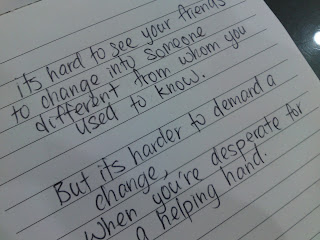 its hard to see your friends
to change into someone
different from whom you
used to know.
But its harder to demand a
change,
when you're desperate for
a helping hand.